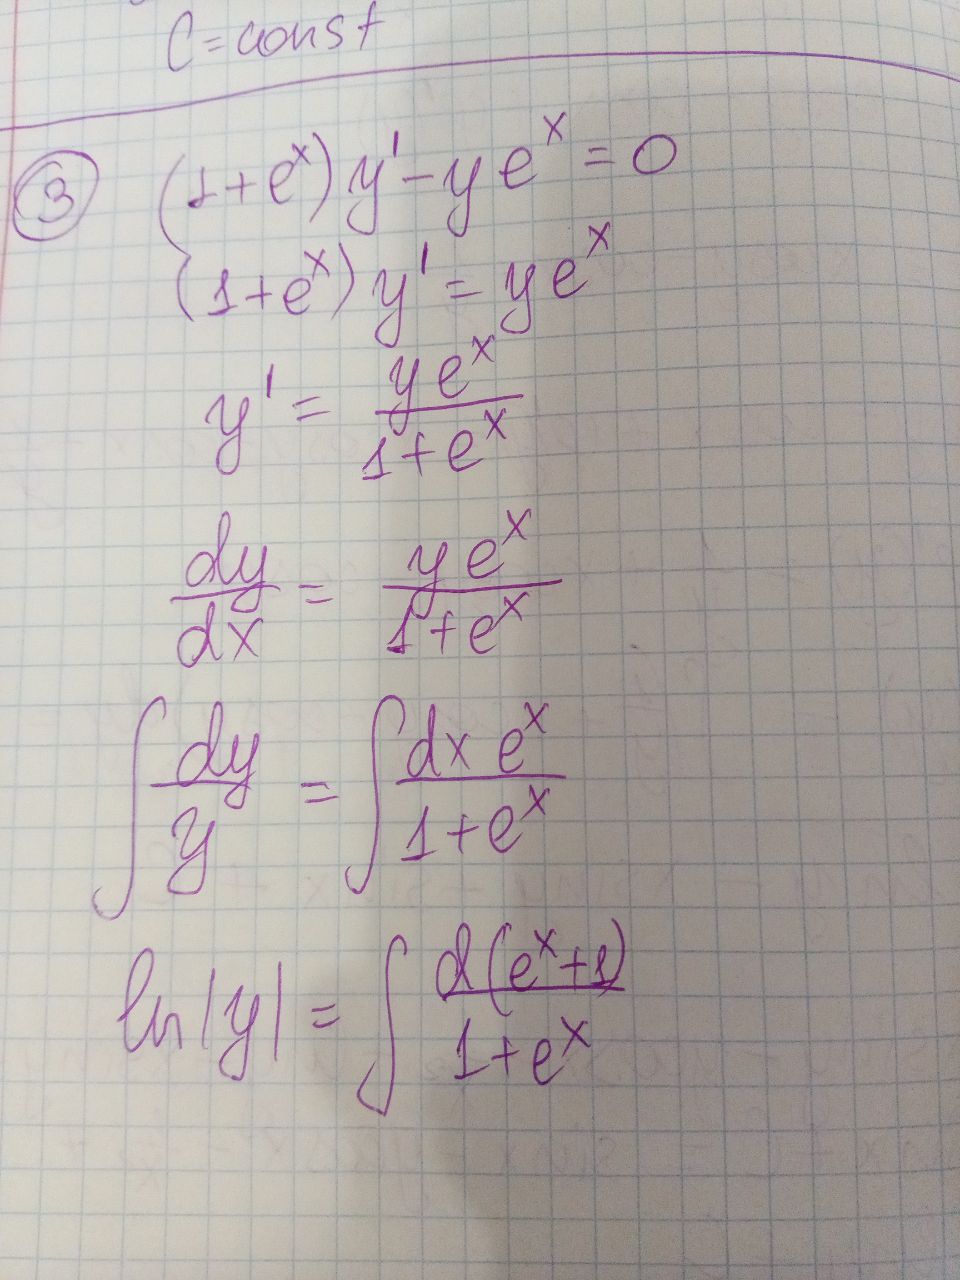 C = const
③ (1+eˣ) y' - y eˣ = 0
(1+eˣ) y' = y eˣ
y' = y eˣ / 1+eˣ
dy/dx = y eˣ / 1+eˣ
∫ dy/y = ∫ dx eˣ / 1+eˣ
ln|y| = ∫ d(eˣ+1) / 1+eˣ